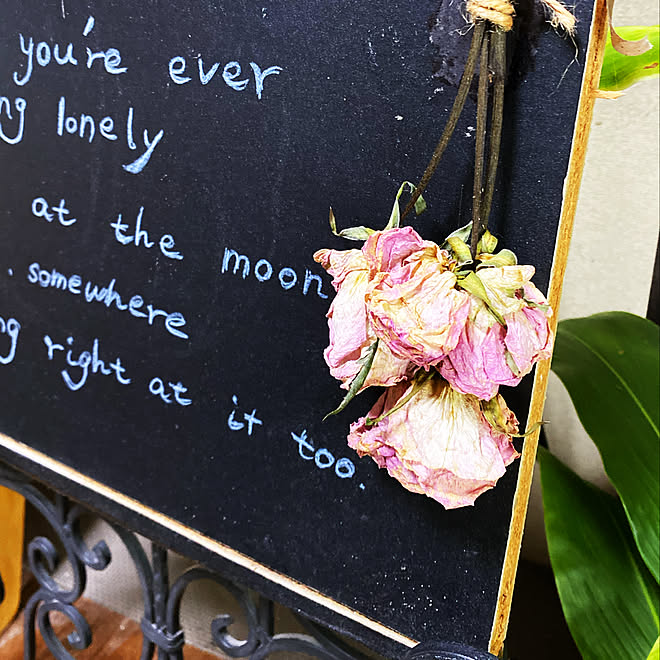 you're ever
lonely
at the moon
somewhere
right at it too.